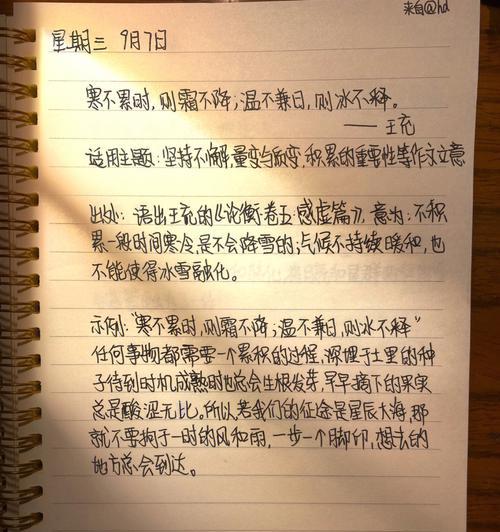 来自@hd
星期三 9月7日
寒不累时，则霜不降；温不兼日，则冰不释。
——王充
适用主题：坚持不懈，量变与质变，积累的重要性等作文立意
出处：语出王充的《论衡·卷五·感虚篇》，意为：不积
累一段时间寒冷是不会降雪的；气候不持续暖和，也
不能使得冰雪融化。
示例："寒不累时，则霜不降；温不兼日，则冰不释"
任何事物都需要一个累积的过程，深埋于土里的种
子待到时机成熟时也总会生根发芽，早早摘下的果实
总是酸涩无比，所以若我们的征途是星辰大海，那
就不要拘于一时的风和雨，一步一个脚印，想去的
地方总会到达。